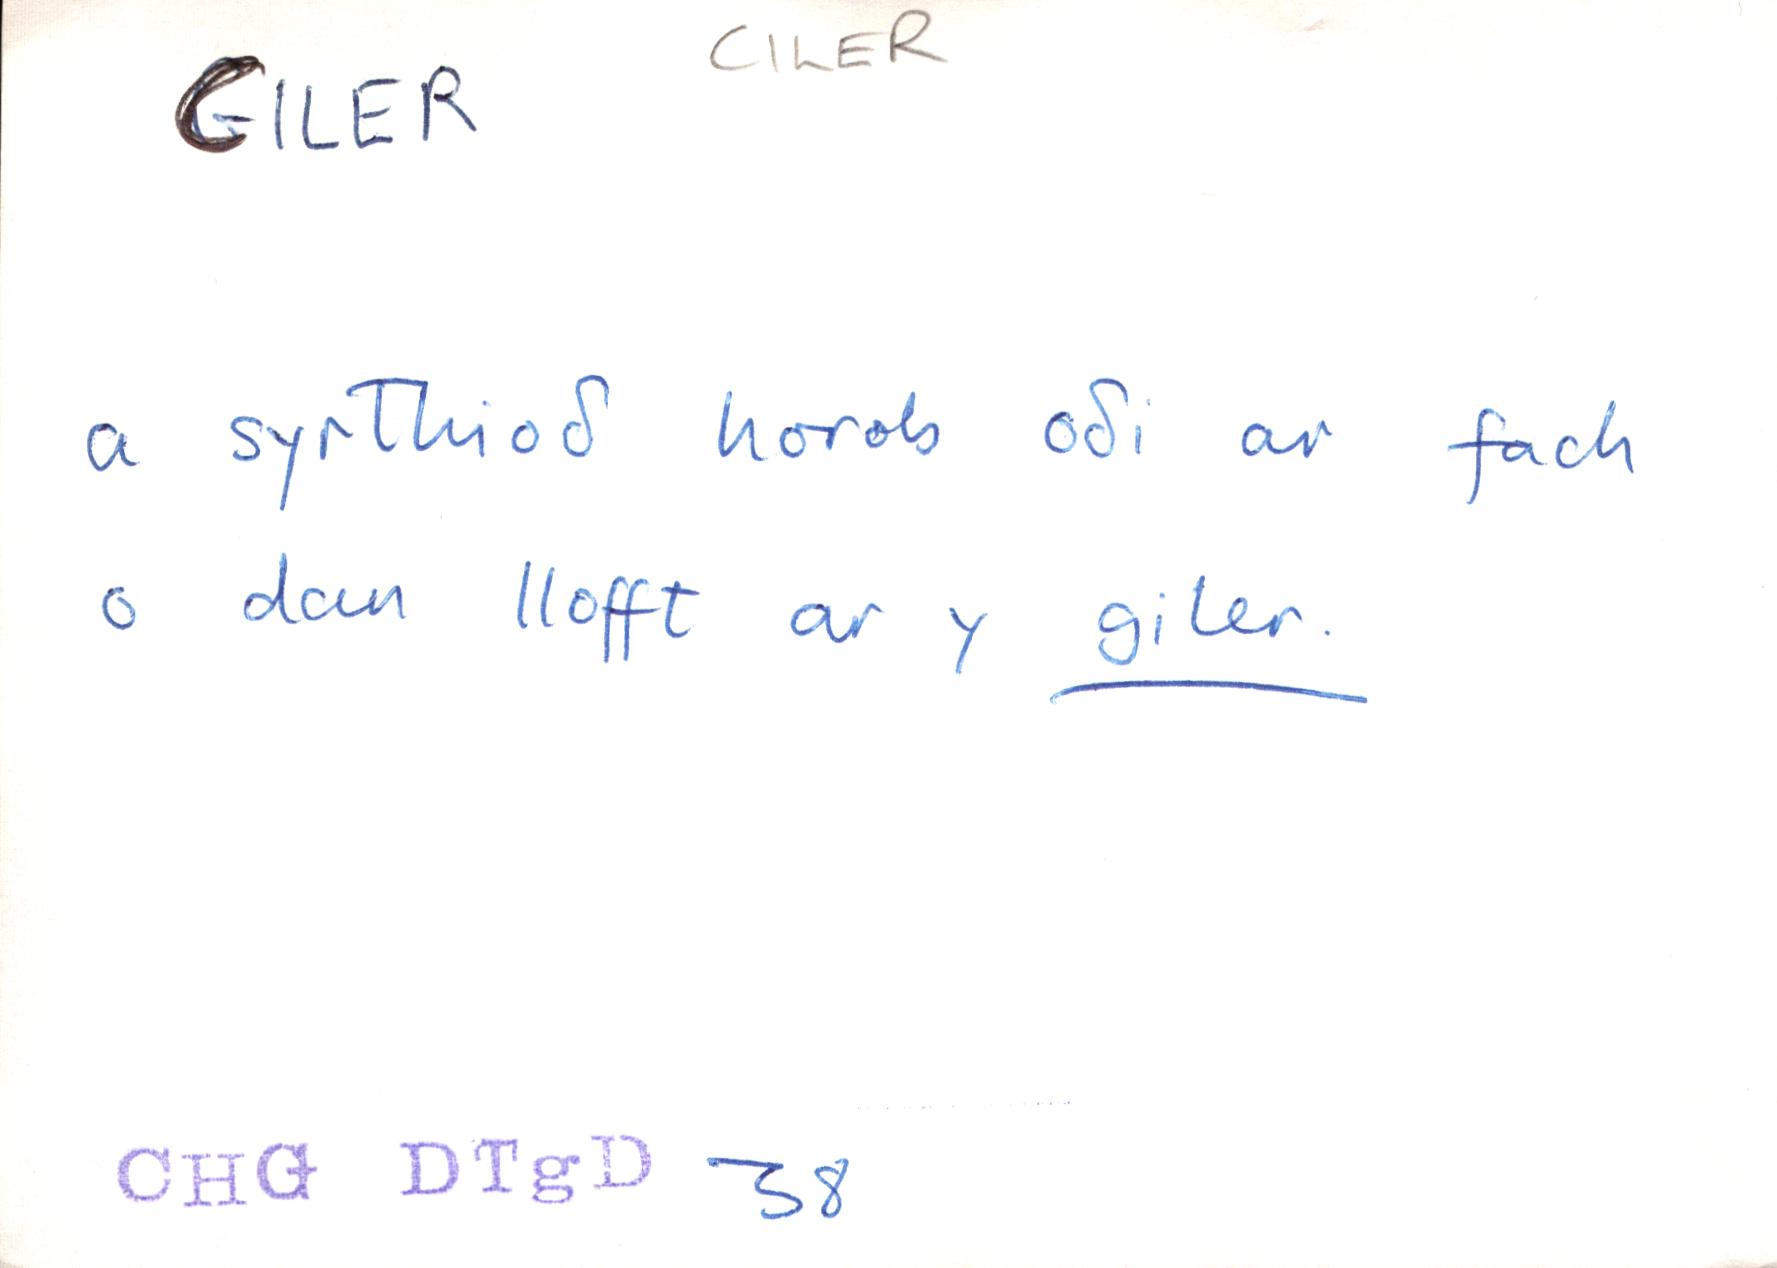 CILER
CILER
a syrthioδ horob oδi ar fach
o dan llofft ar y giler.
CHG DTgD 38